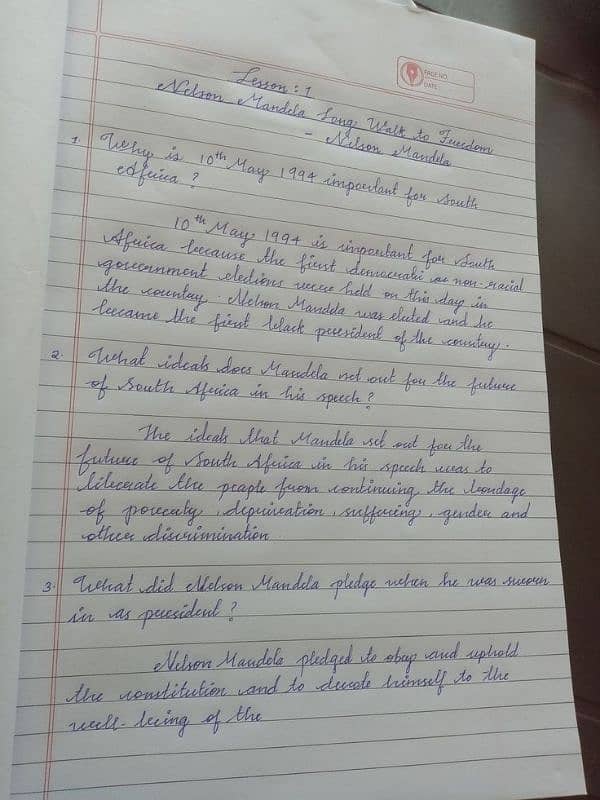 PAGE NO.
DATE
Lesson : 1
Nelson Mandela Long Walk to Freedom
- Nelson Mandela
1. Why is 10th May 1994 important for South
Africa ?
10th May, 1994 is important for South
Africa because the first democratic as non-racial
government elections were held on this day in
the country. Nelson Mandela was elected and he
became the first black president of the country.
2. What ideals does Mandela set out for the future
of South Africa in his speech ?
The ideals that Mandela set out for the
future of South Africa in his speech was to
liberate the people from continuing the bondage
of poverty, deprivation, suffering, gender and
other discrimination
3. What did Nelson Mandela pledge when he was sworn
in as president ?
Nelson Mandela pledged to obey and uphold
the constitution and to devote himself to the
well-being of the